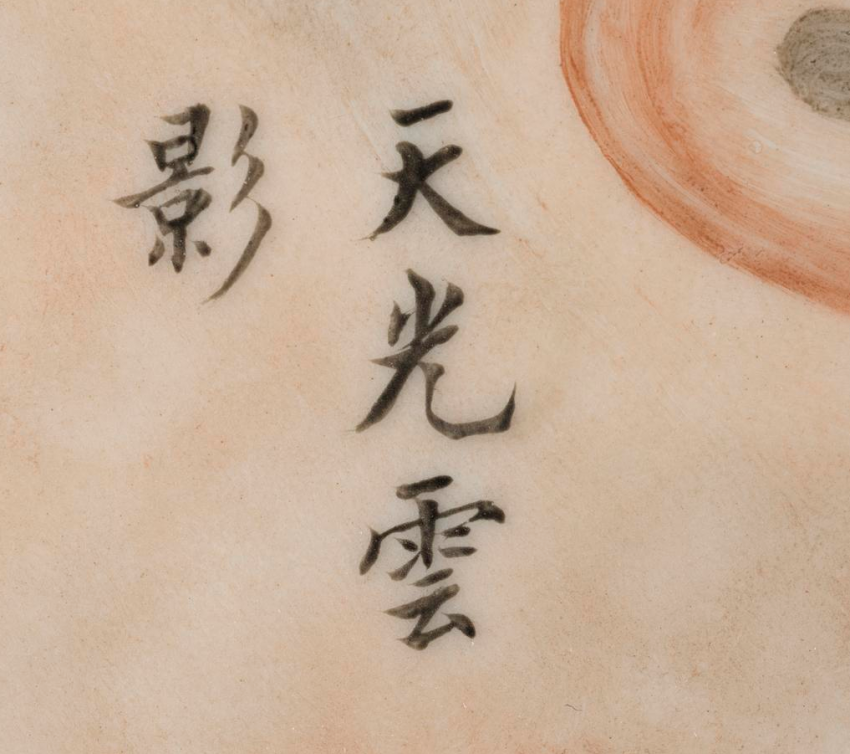 天光雲
影